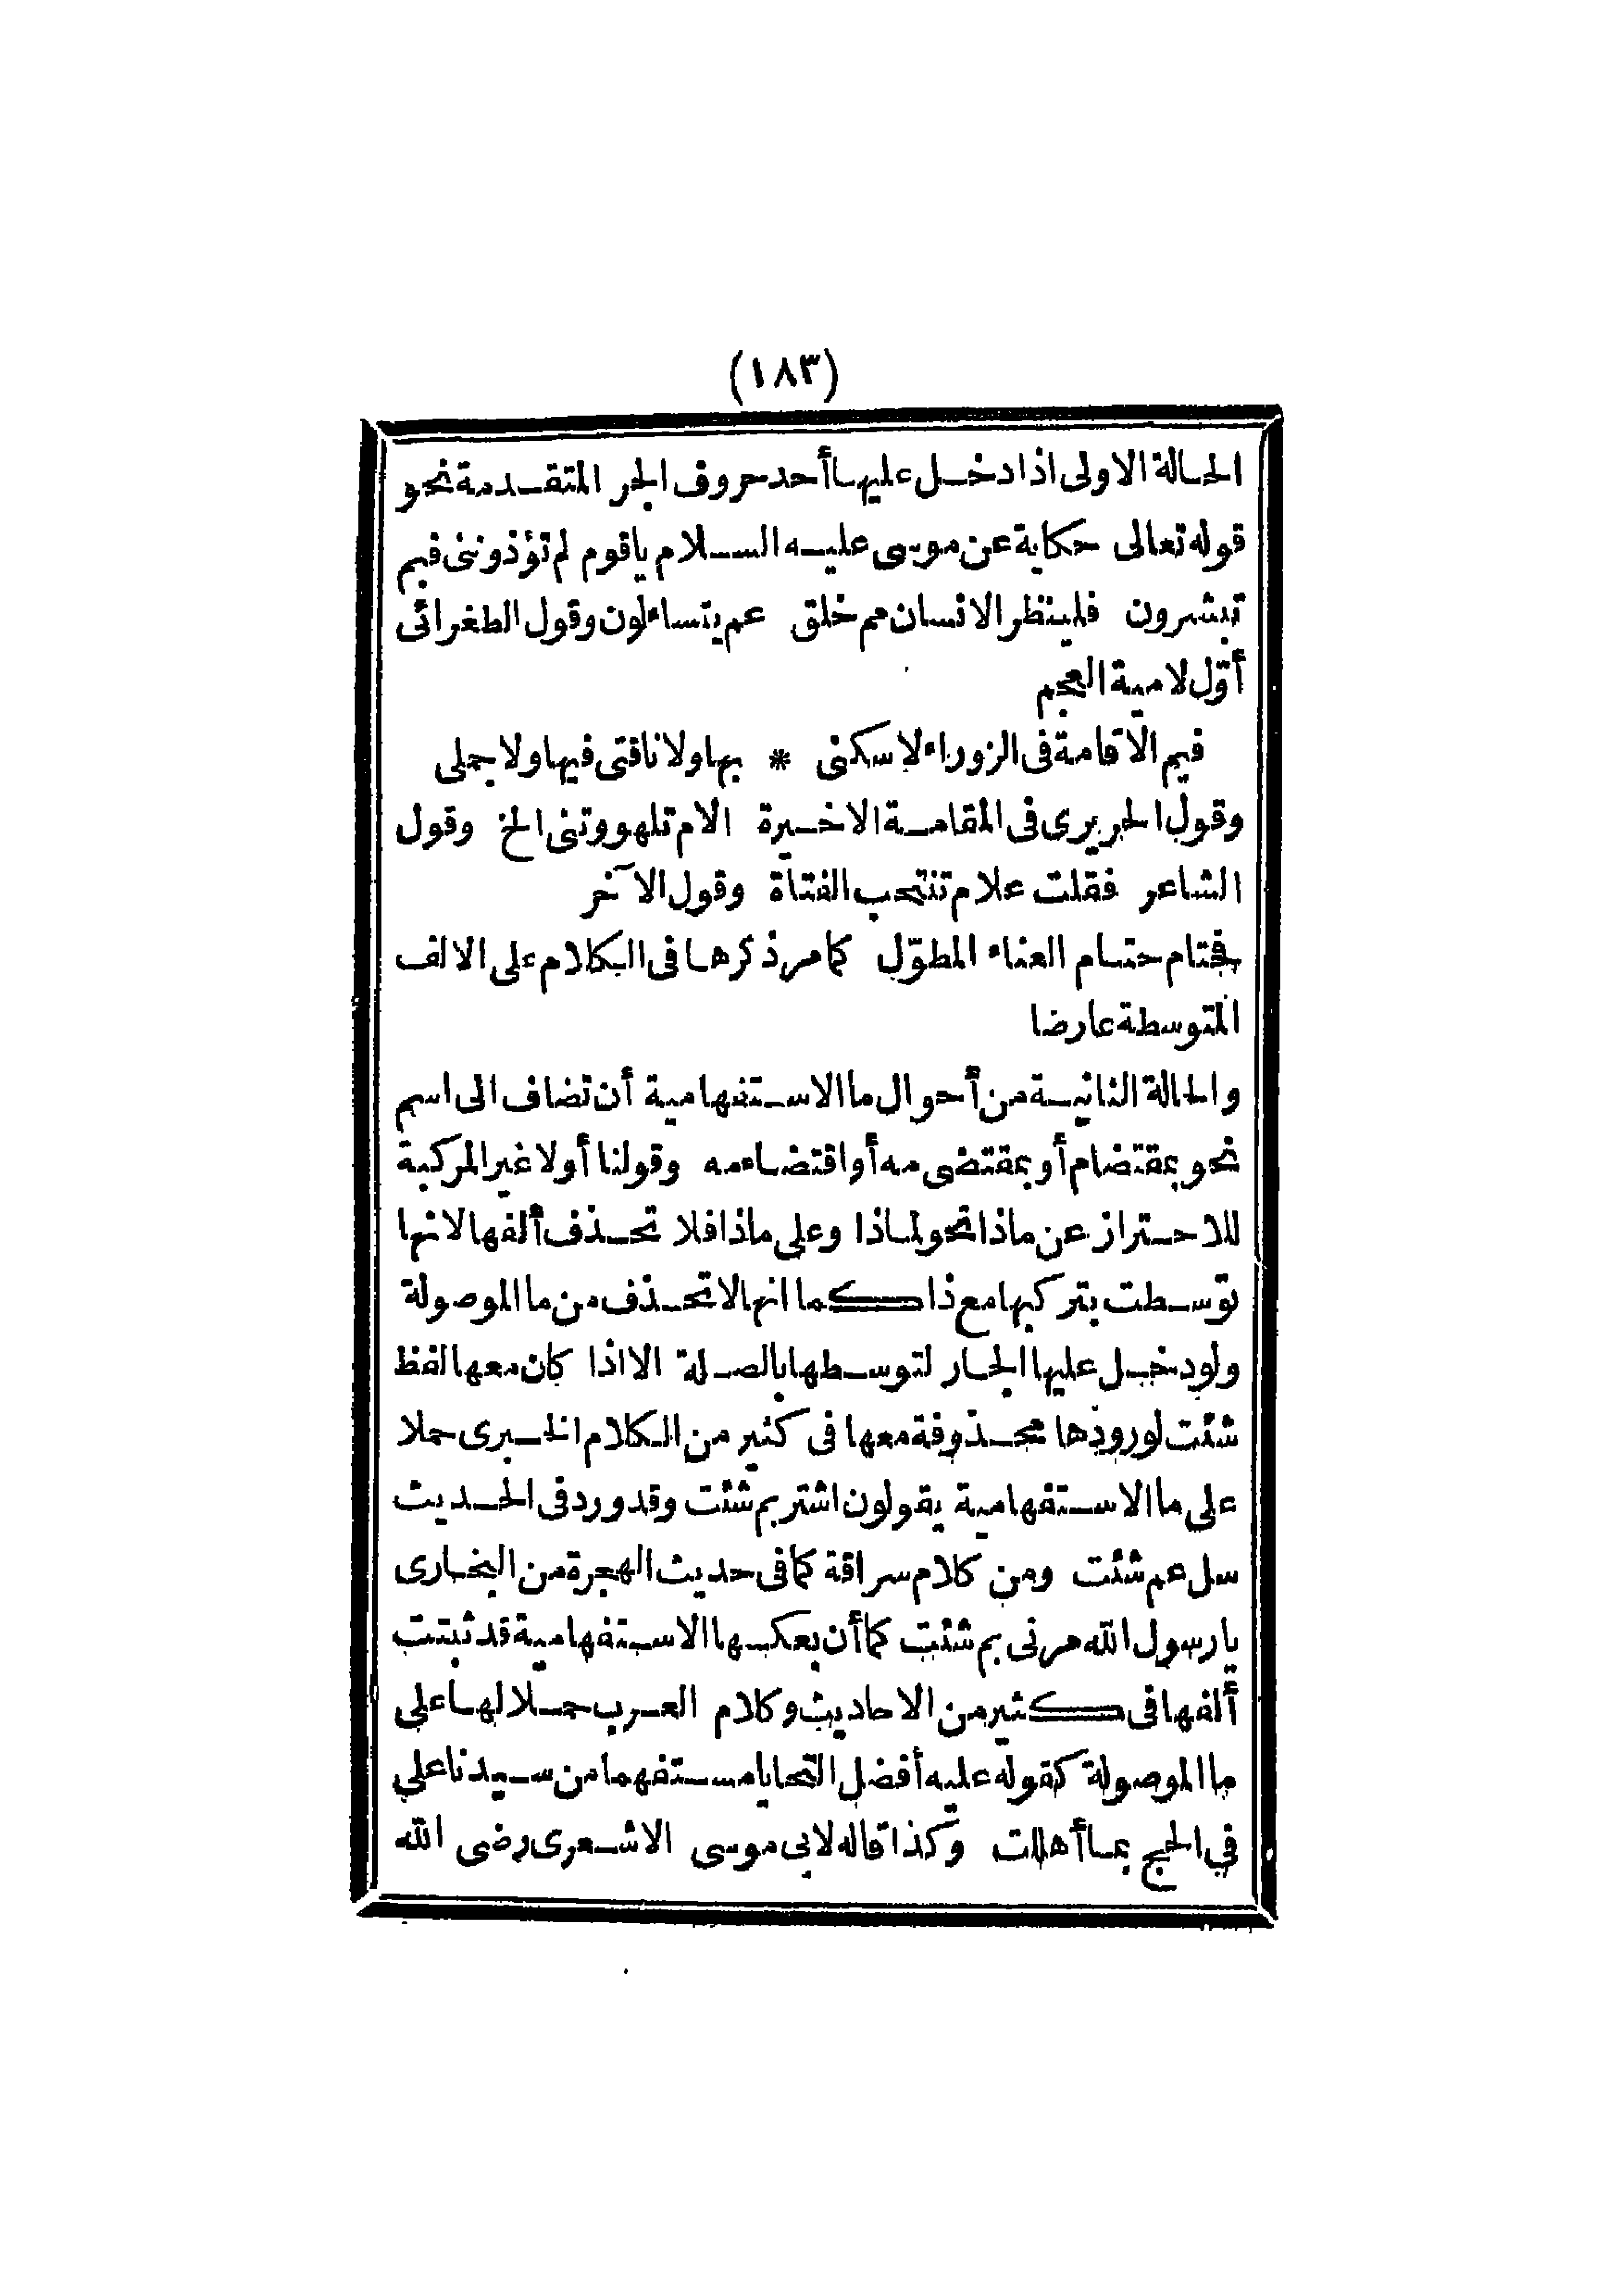 (١٨٣)
الحالة الاولى اذا دخل عليها أحد حروف الجر المتقدمة نحو
قوله تعالى حكاية عن موسى عليه السلام ياقوم لم تؤذوننى فبم
تبشرون فلينظر الانسان مم خلق عم يتساءلون وقول الطغرائى
أوّل لامية العجم
فيم الاقامة فى الزوراء لاسكنى * بها ولا ناقتى فيها ولا جملى
وقول الحريرى فى المقامة الاخيرة الام تلهو وتنى الخ وقول
الشاعر فقلت علام تنتحب الفتاة وقول الآخر
فحتام حتام العناء المطوّل كما مر ذكرها فى الكلام على الالف
المتوسطة عارضا
والحالة الثانية من أحوال ما الاستفهامية أن تضاف الى اسم
نحو بمقتضام أو بمقتضى مه أو اقتضاءمه وقولنا أولا غير المركبة
للاحتراز عن ماذا نحو لماذا وعلى ماذا فلا تحذف ألفها لانها
توسطت بتركبها مع ذا كما انها لا تحذف من ما الموصولة
ولو دخل عليها الجار لتوسطها بالصلة الا اذا كان معها لفظ
شئت لورودها محذوفة معها فى كثير من الكلام الخبرى حملا
على ما الاستفهامية يقولون اشتر بم شئت وقد ورد فى الحديث
سل عم شئت ومن كلام سراقة كما فى حديث الهجرة من البخارى
يا رسول الله مرنى بم شئت كما أن بعكسها الاستفهامية قد ثبتت
ألفها فى كثير من الاحاديث وكلام العرب حملا لها على
ما الموصولة كقوله عليه أفضل التحايا مستفهما من سيدنا على
فى الحج بما أهللت وكذا قاله لابى موسى الاشعرى رضى الله